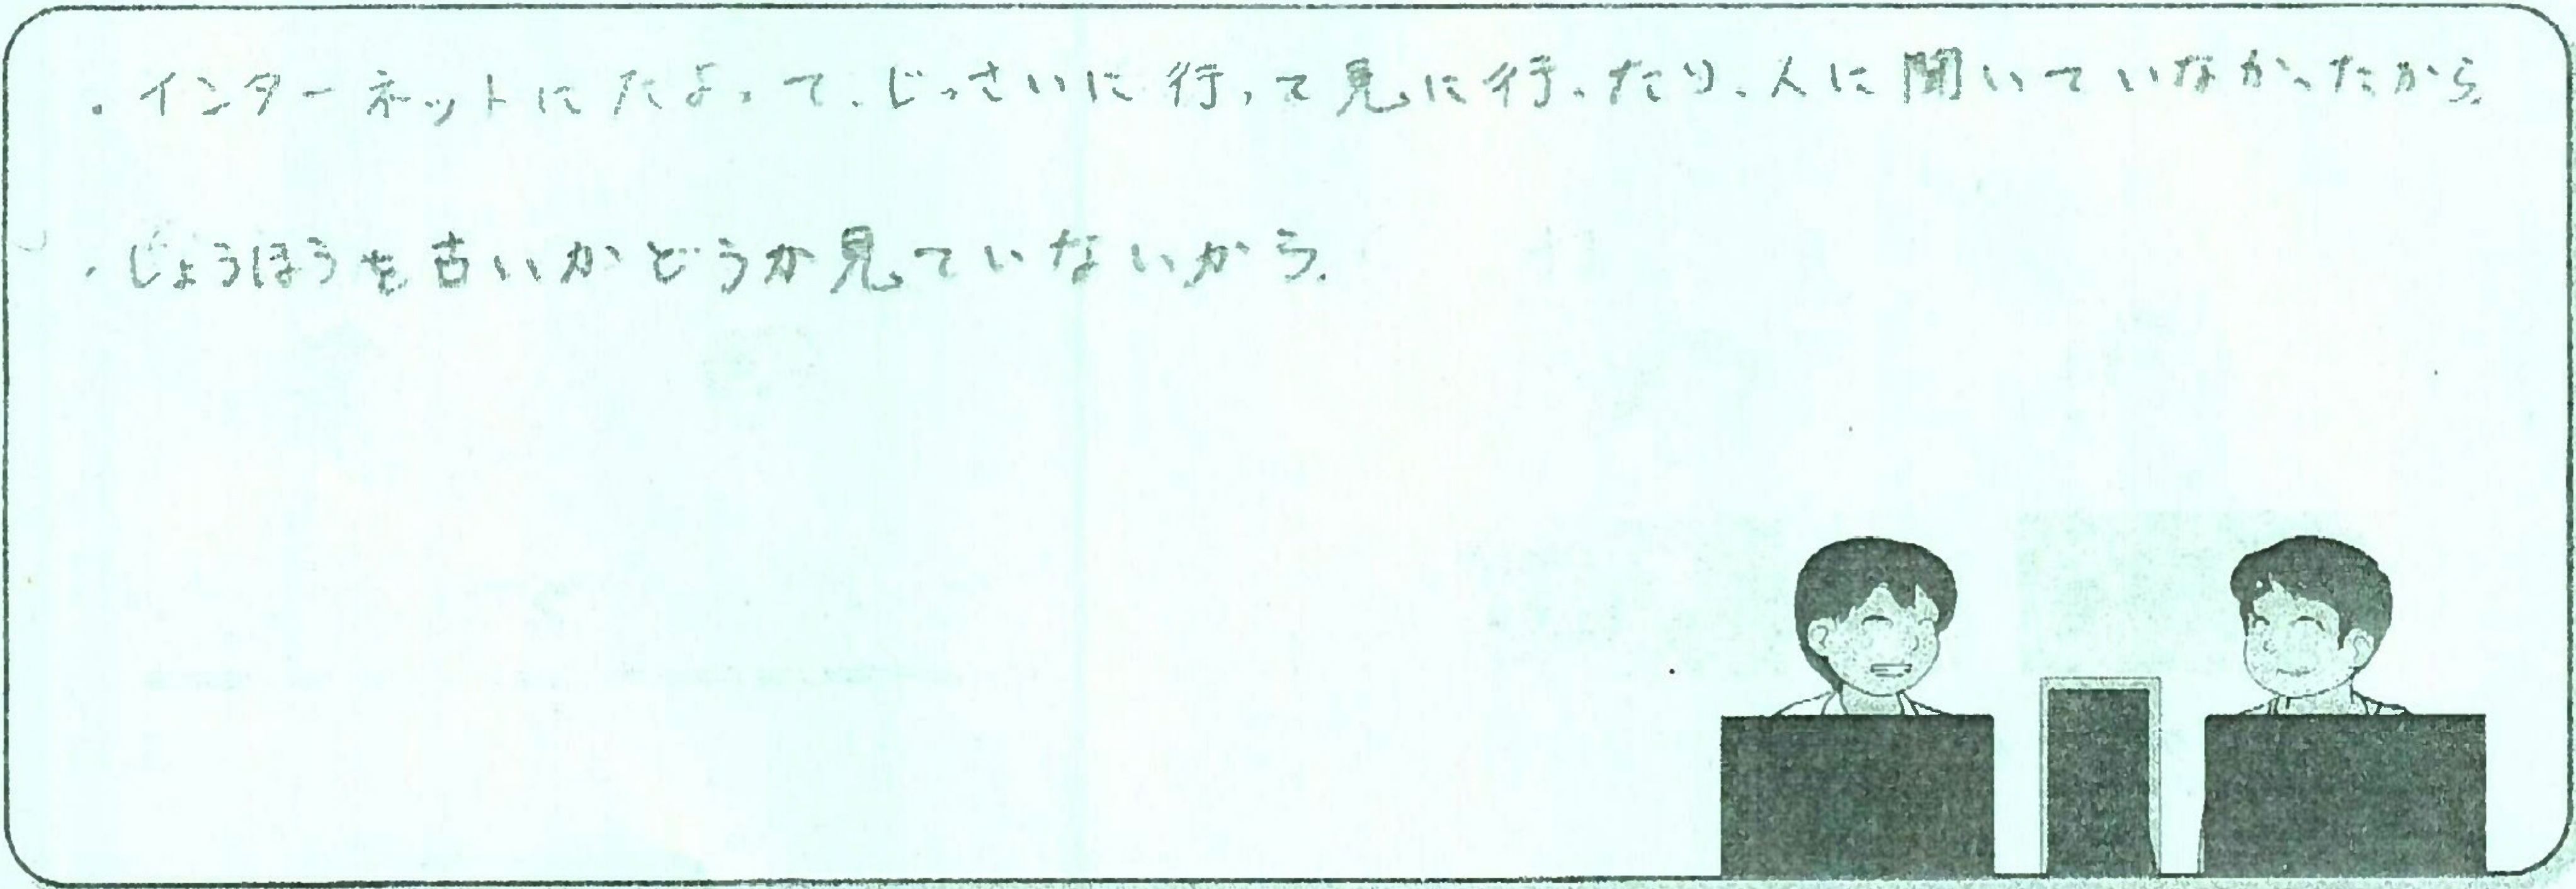 ・インターネットにたよって、じっさいに行って見に行ったり、人に聞いていなかったから。
・じょうほうを古いかどうか見ていないから。